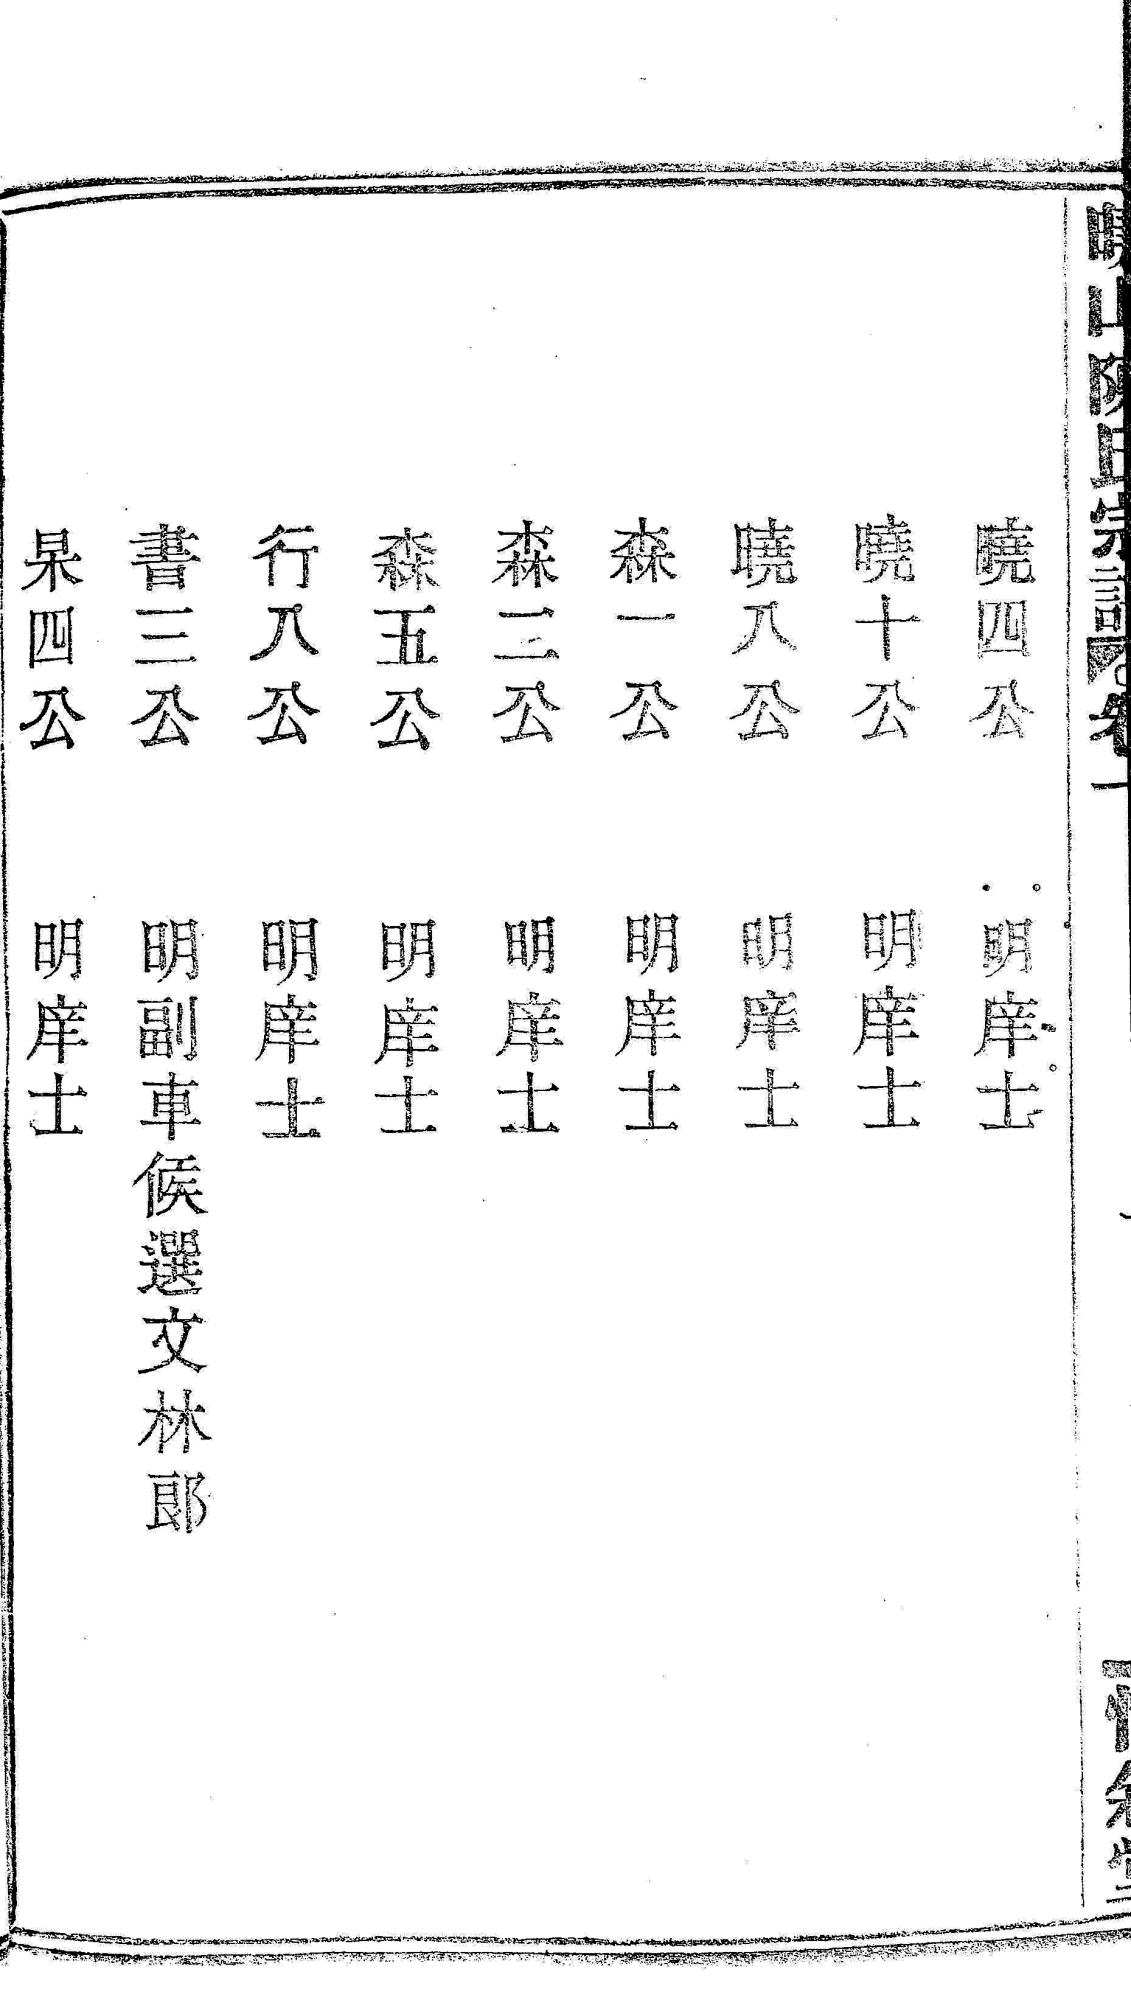 曉山陳氏宗譜 卷一
曉四公 明庠士
曉十公 明庠士
曉八公 明庠士
森一公 明庠士
森二公 明庠士
森五公 明庠士
行八公 明庠士
書三公 明副車候選文林郎
杲四公 明庠士